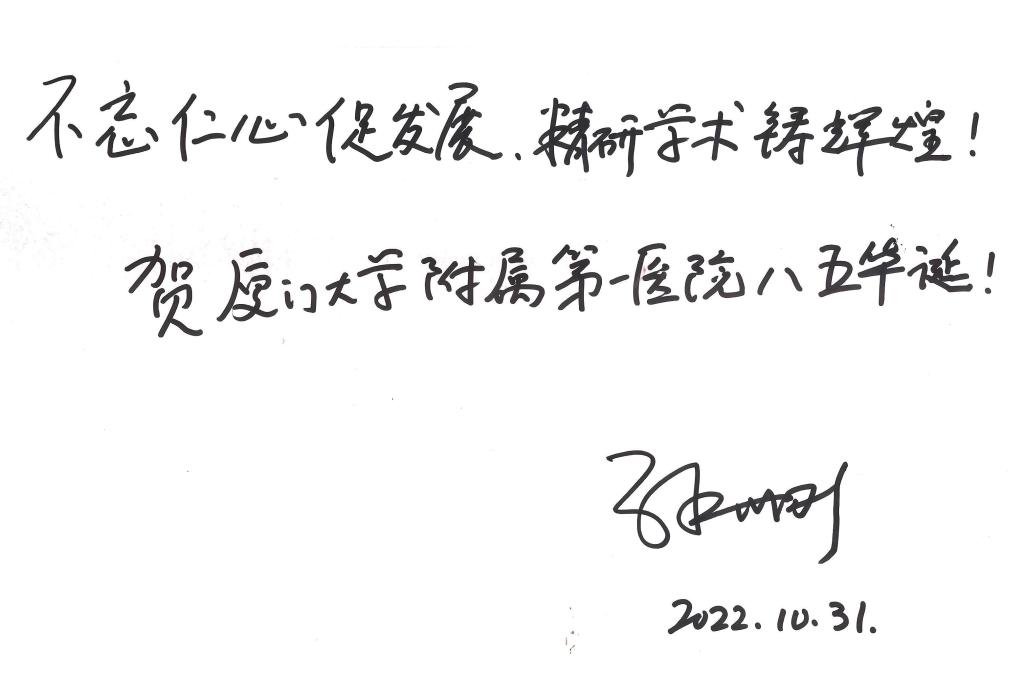 不忘仁心促发展、精研学术铸辉煌!
贺厦门大学附属第一医院八五华诞!
2022.10.31.